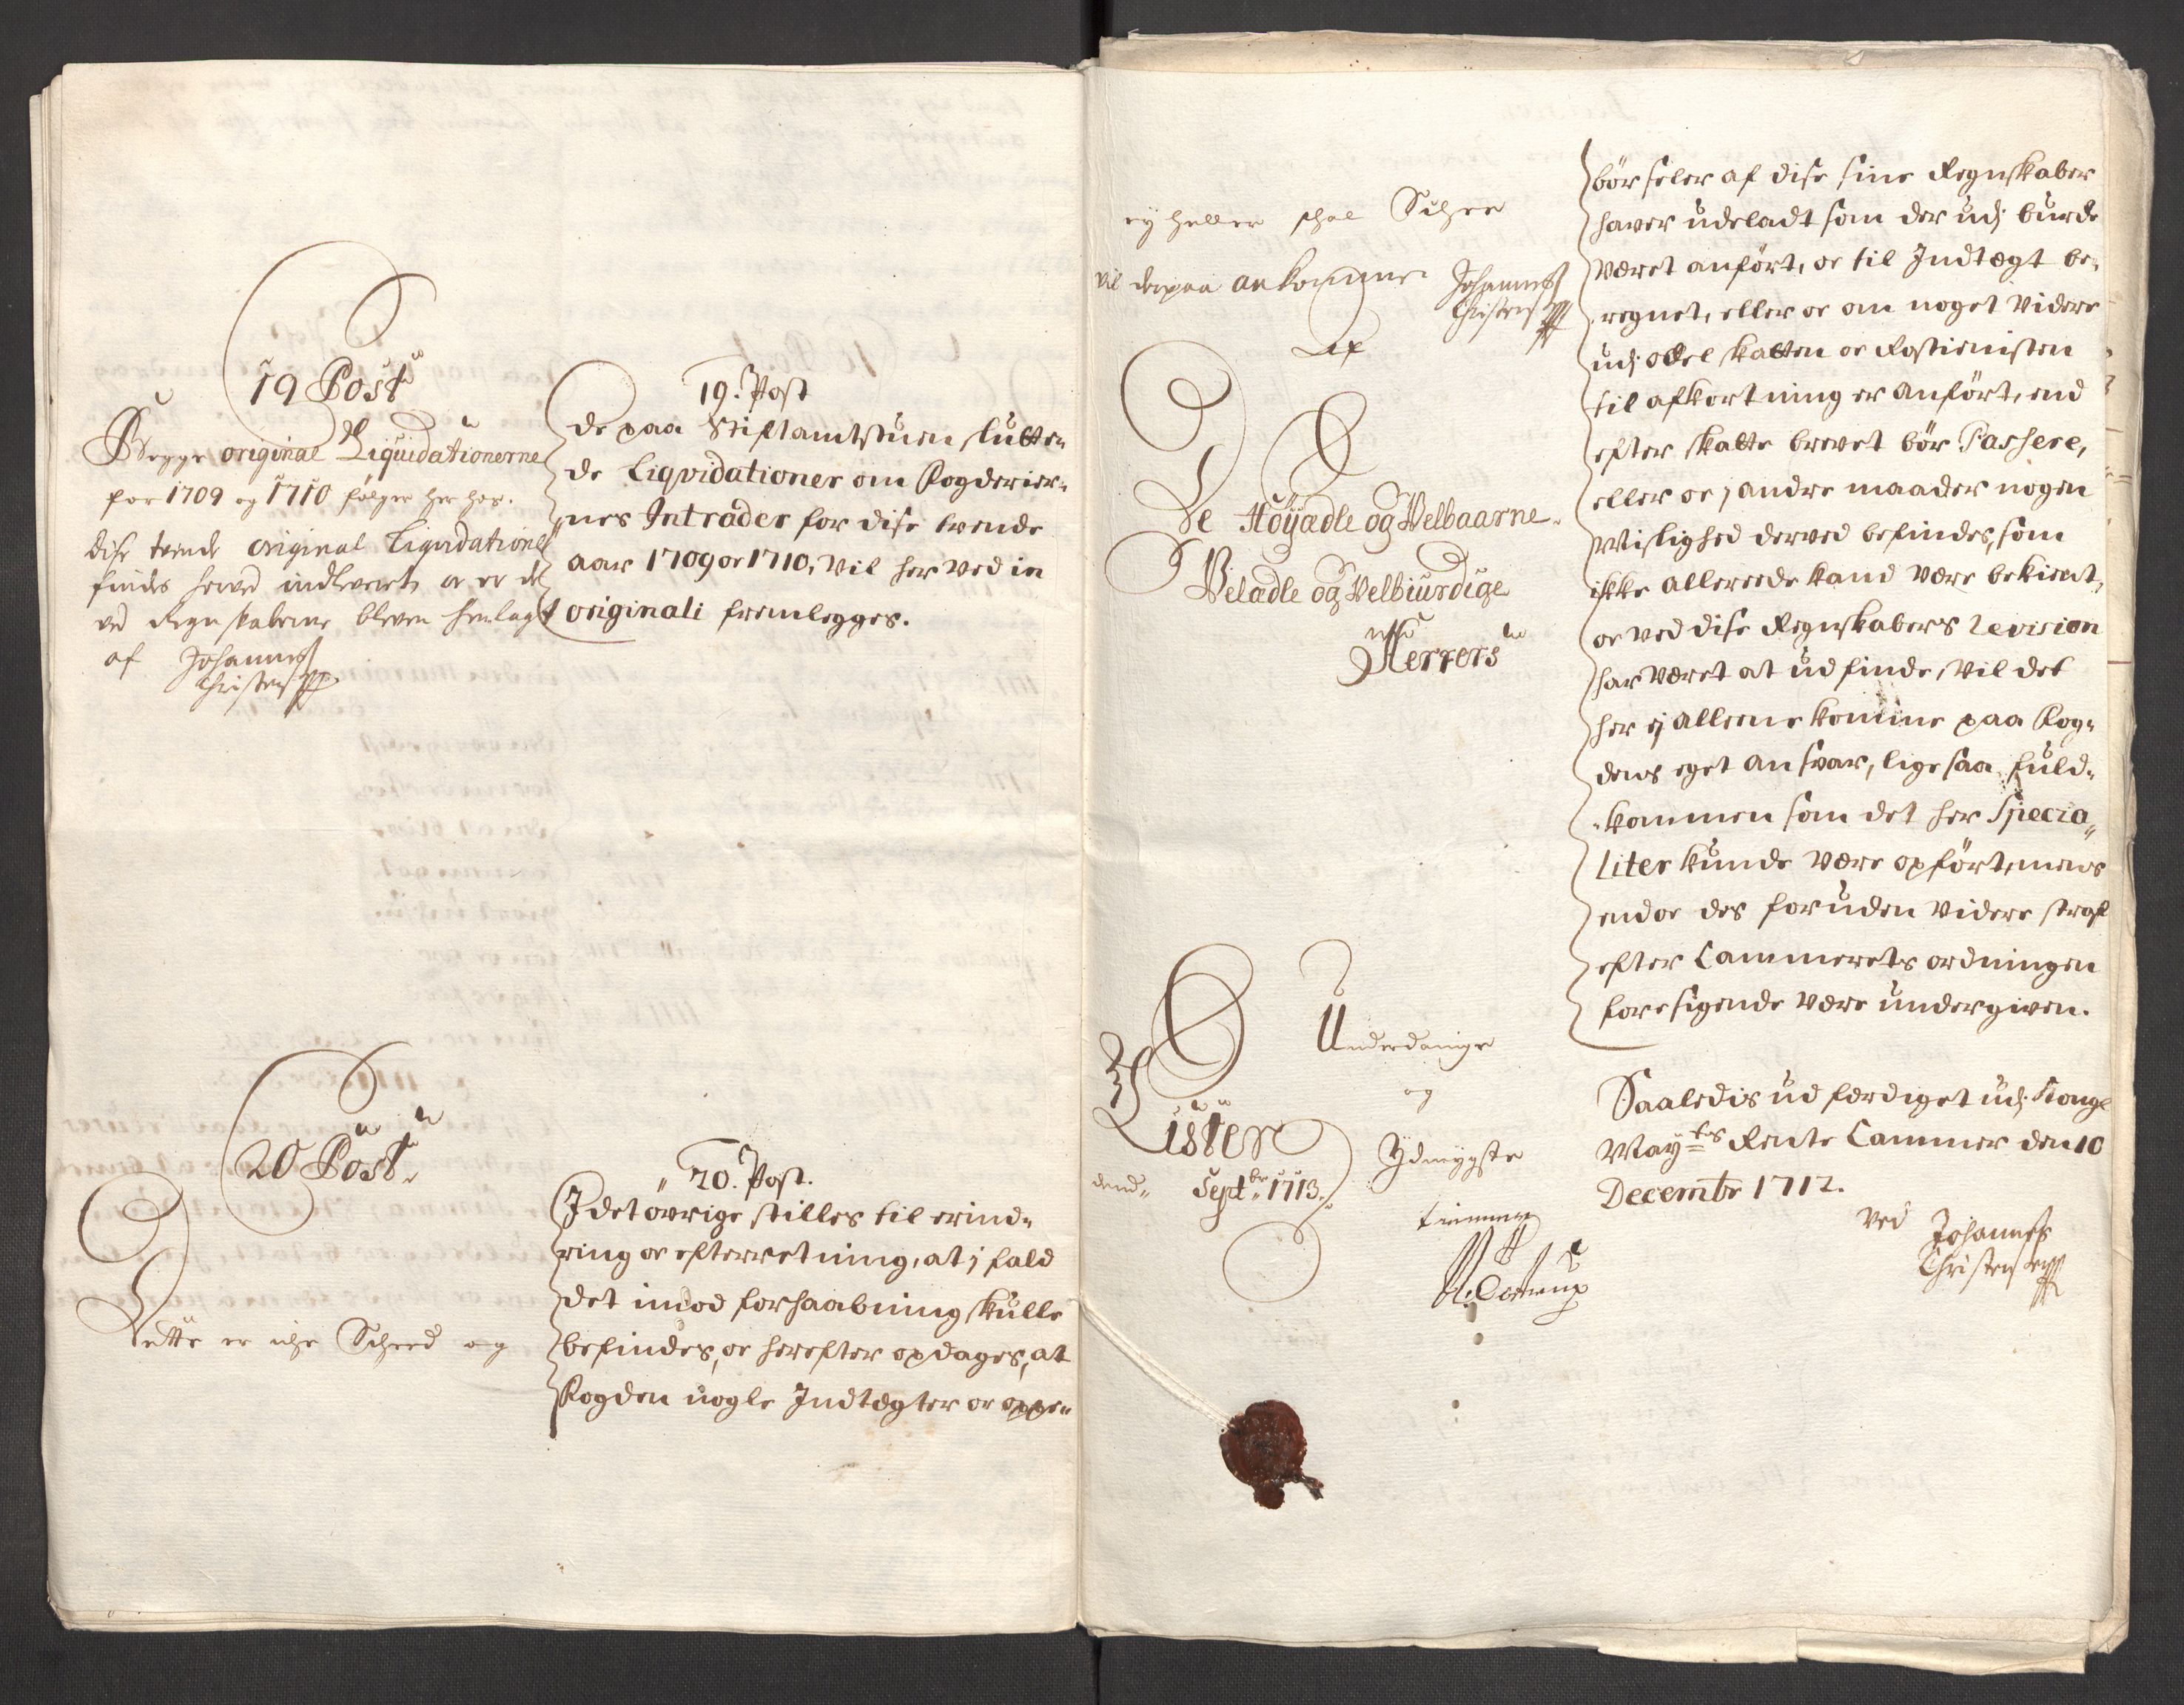 19 Post
Begge original Liquidationerne
for 1709 og 1710 følger her hos.
dise tvende original Liqvidationer
findes herved indleveret, oc er de
ved Regnskaberne bleven henlagt
af Johannes
Christensen
19. Post
De paa Stiftamtstuen slutte-
de Liqvidationer om Fogderier-
nes Intrader for dise tvende
aar 1709 oc 1710, vil her ved in
originali fremlegges.
20 Post.
Dette er iche Scheed og
20. Post.
I det øvrige stilles til erind-
ring oc efterretning, at i fald
det imod forhaabning skulle
befindes, oc herefter opdages, at
Fogden nogle Indtegter oc oppe-
ey heller skal Schee
vil derpaa ankomme Johannes
Christensen
De Höÿædle og Velbaarne
Velædle og Velbiurdige
Herrers
Lister
dend Septbr 1713.
Underdanige
og
Ydmygste
tienner
børseler af dise sine Regnskaber
haver udeladt som der udj burde
været anført, oc til Indtegt be-
regnet, eller oc om noget videre
udj odel skatten oc Rostienisten
til afkortning er anført, end
efter skatte brevet bør Passere,
eller oc j andre maader nogen
Mislighed derved befindes, som
ikke allerede kand være bekient,
oc ved dise Regnskabers Revision
har været at udfinde, vil det
her ej allene komme paa Fog-
dens eget ansvar, lige saa fuld-
kommen som det her Specia-
liter kunde være opført, mens
endoc des foruden videre straf
efter Cammerets ordningen
foresigende være undergiven.
Saaledis udferdiget udj Kongl
Maytes Rente Cammer den 10
Decembr 1712.
Ved Johannes
Christensen